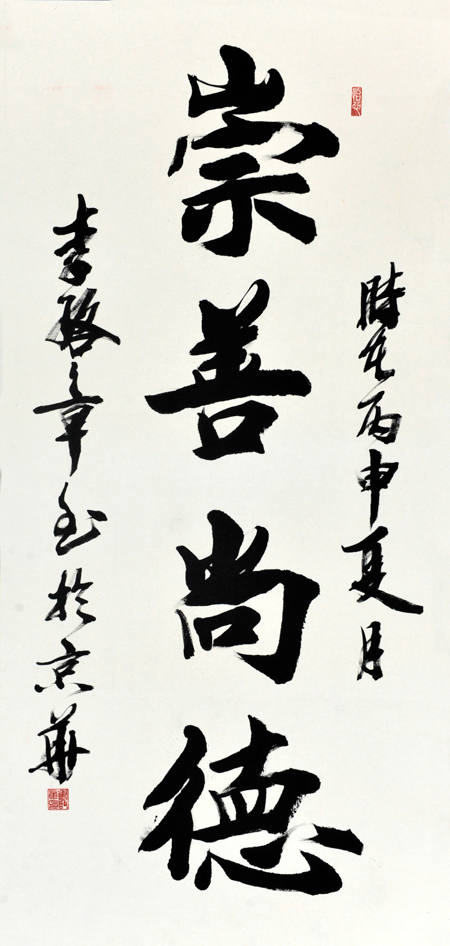 時在丙申夏月
崇善尚德
李啓章書於京華